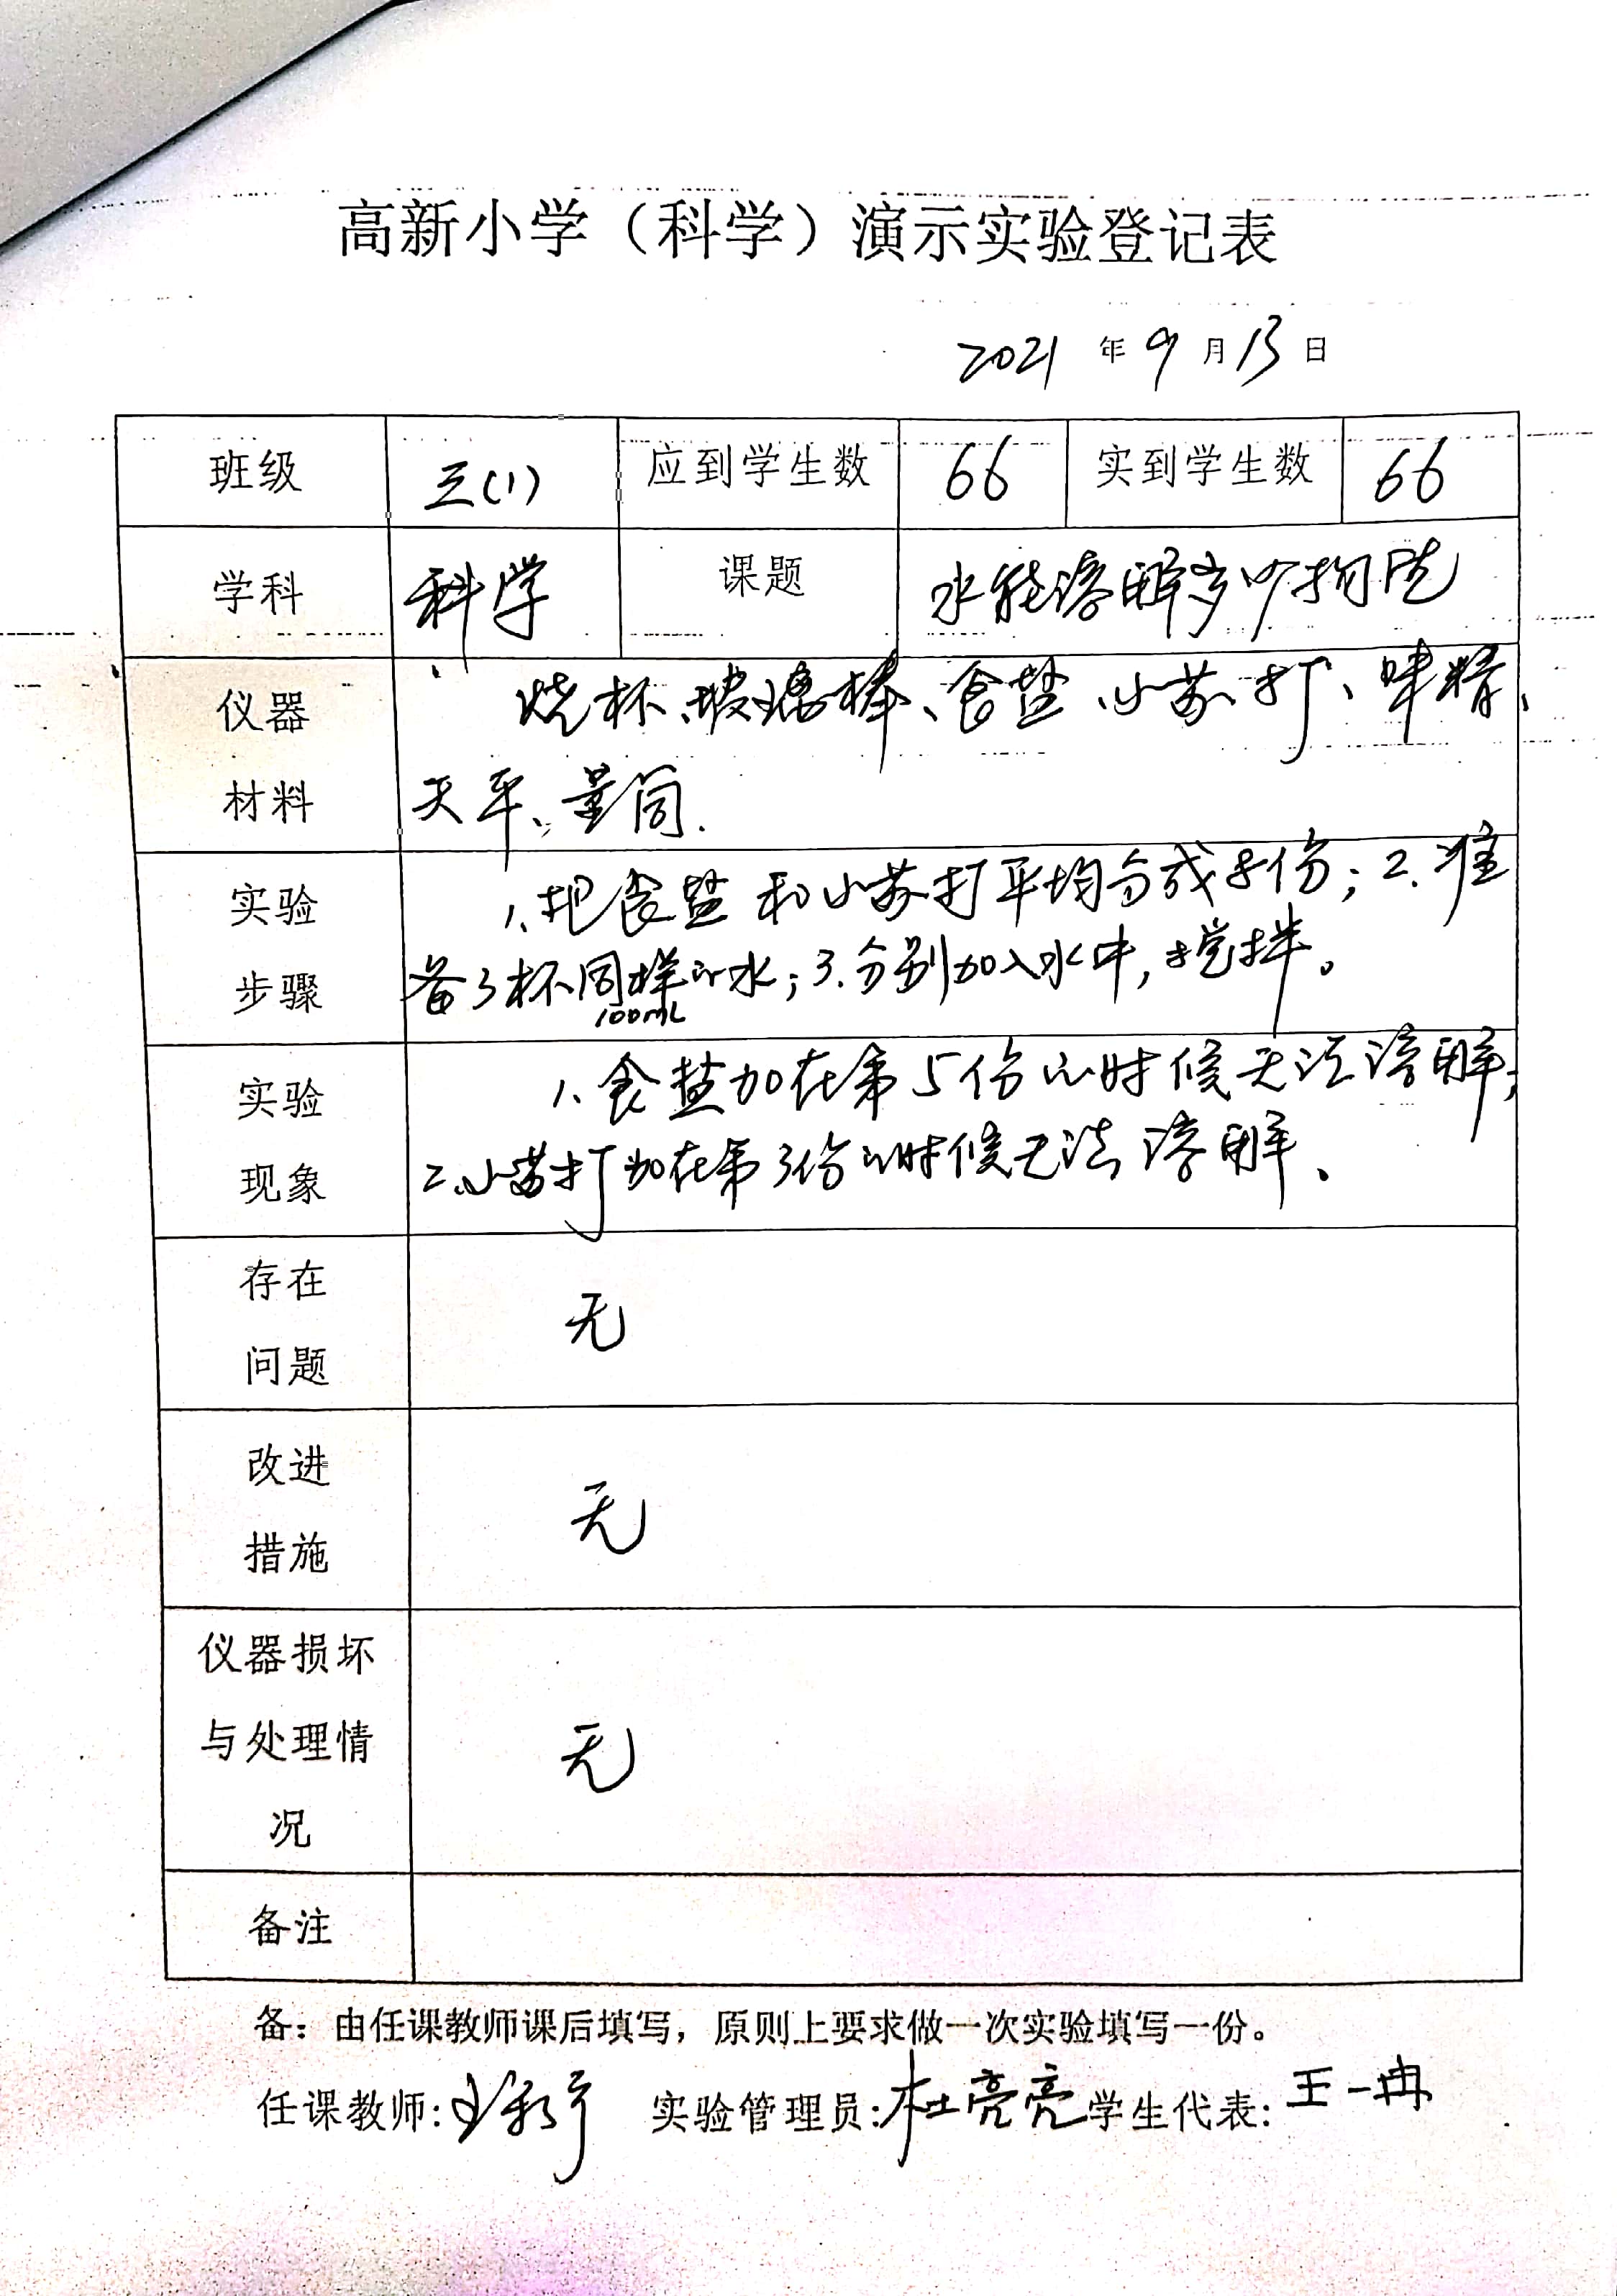 高新小学（科学）演示实验登记表
2021 年 9 月 13 日
班级 三(1) 应到学生数 66 实到学生数 66
学科 科学 课题 水能溶解多少物质
仪器 烧杯、玻璃棒、食盐、小苏打、味精、
材料 天平、量筒.
实验 1、把食盐和小苏打平均分成8份；2.准
步骤 备3杯同样的水；3.分别加入水中，搅拌。
100mL
实验 1、食盐加在第5份的时候无法溶解；
现象 2、小苏打加在第3份的时候无法溶解、
存在
问题
无
改进
措施
无
仪器损坏
与处理情
况
无
备注
备：由任课教师课后填写，原则上要求做一次实验填写一份。
任课教师: 实验管理员:杜亮亮 学生代表:王一冉